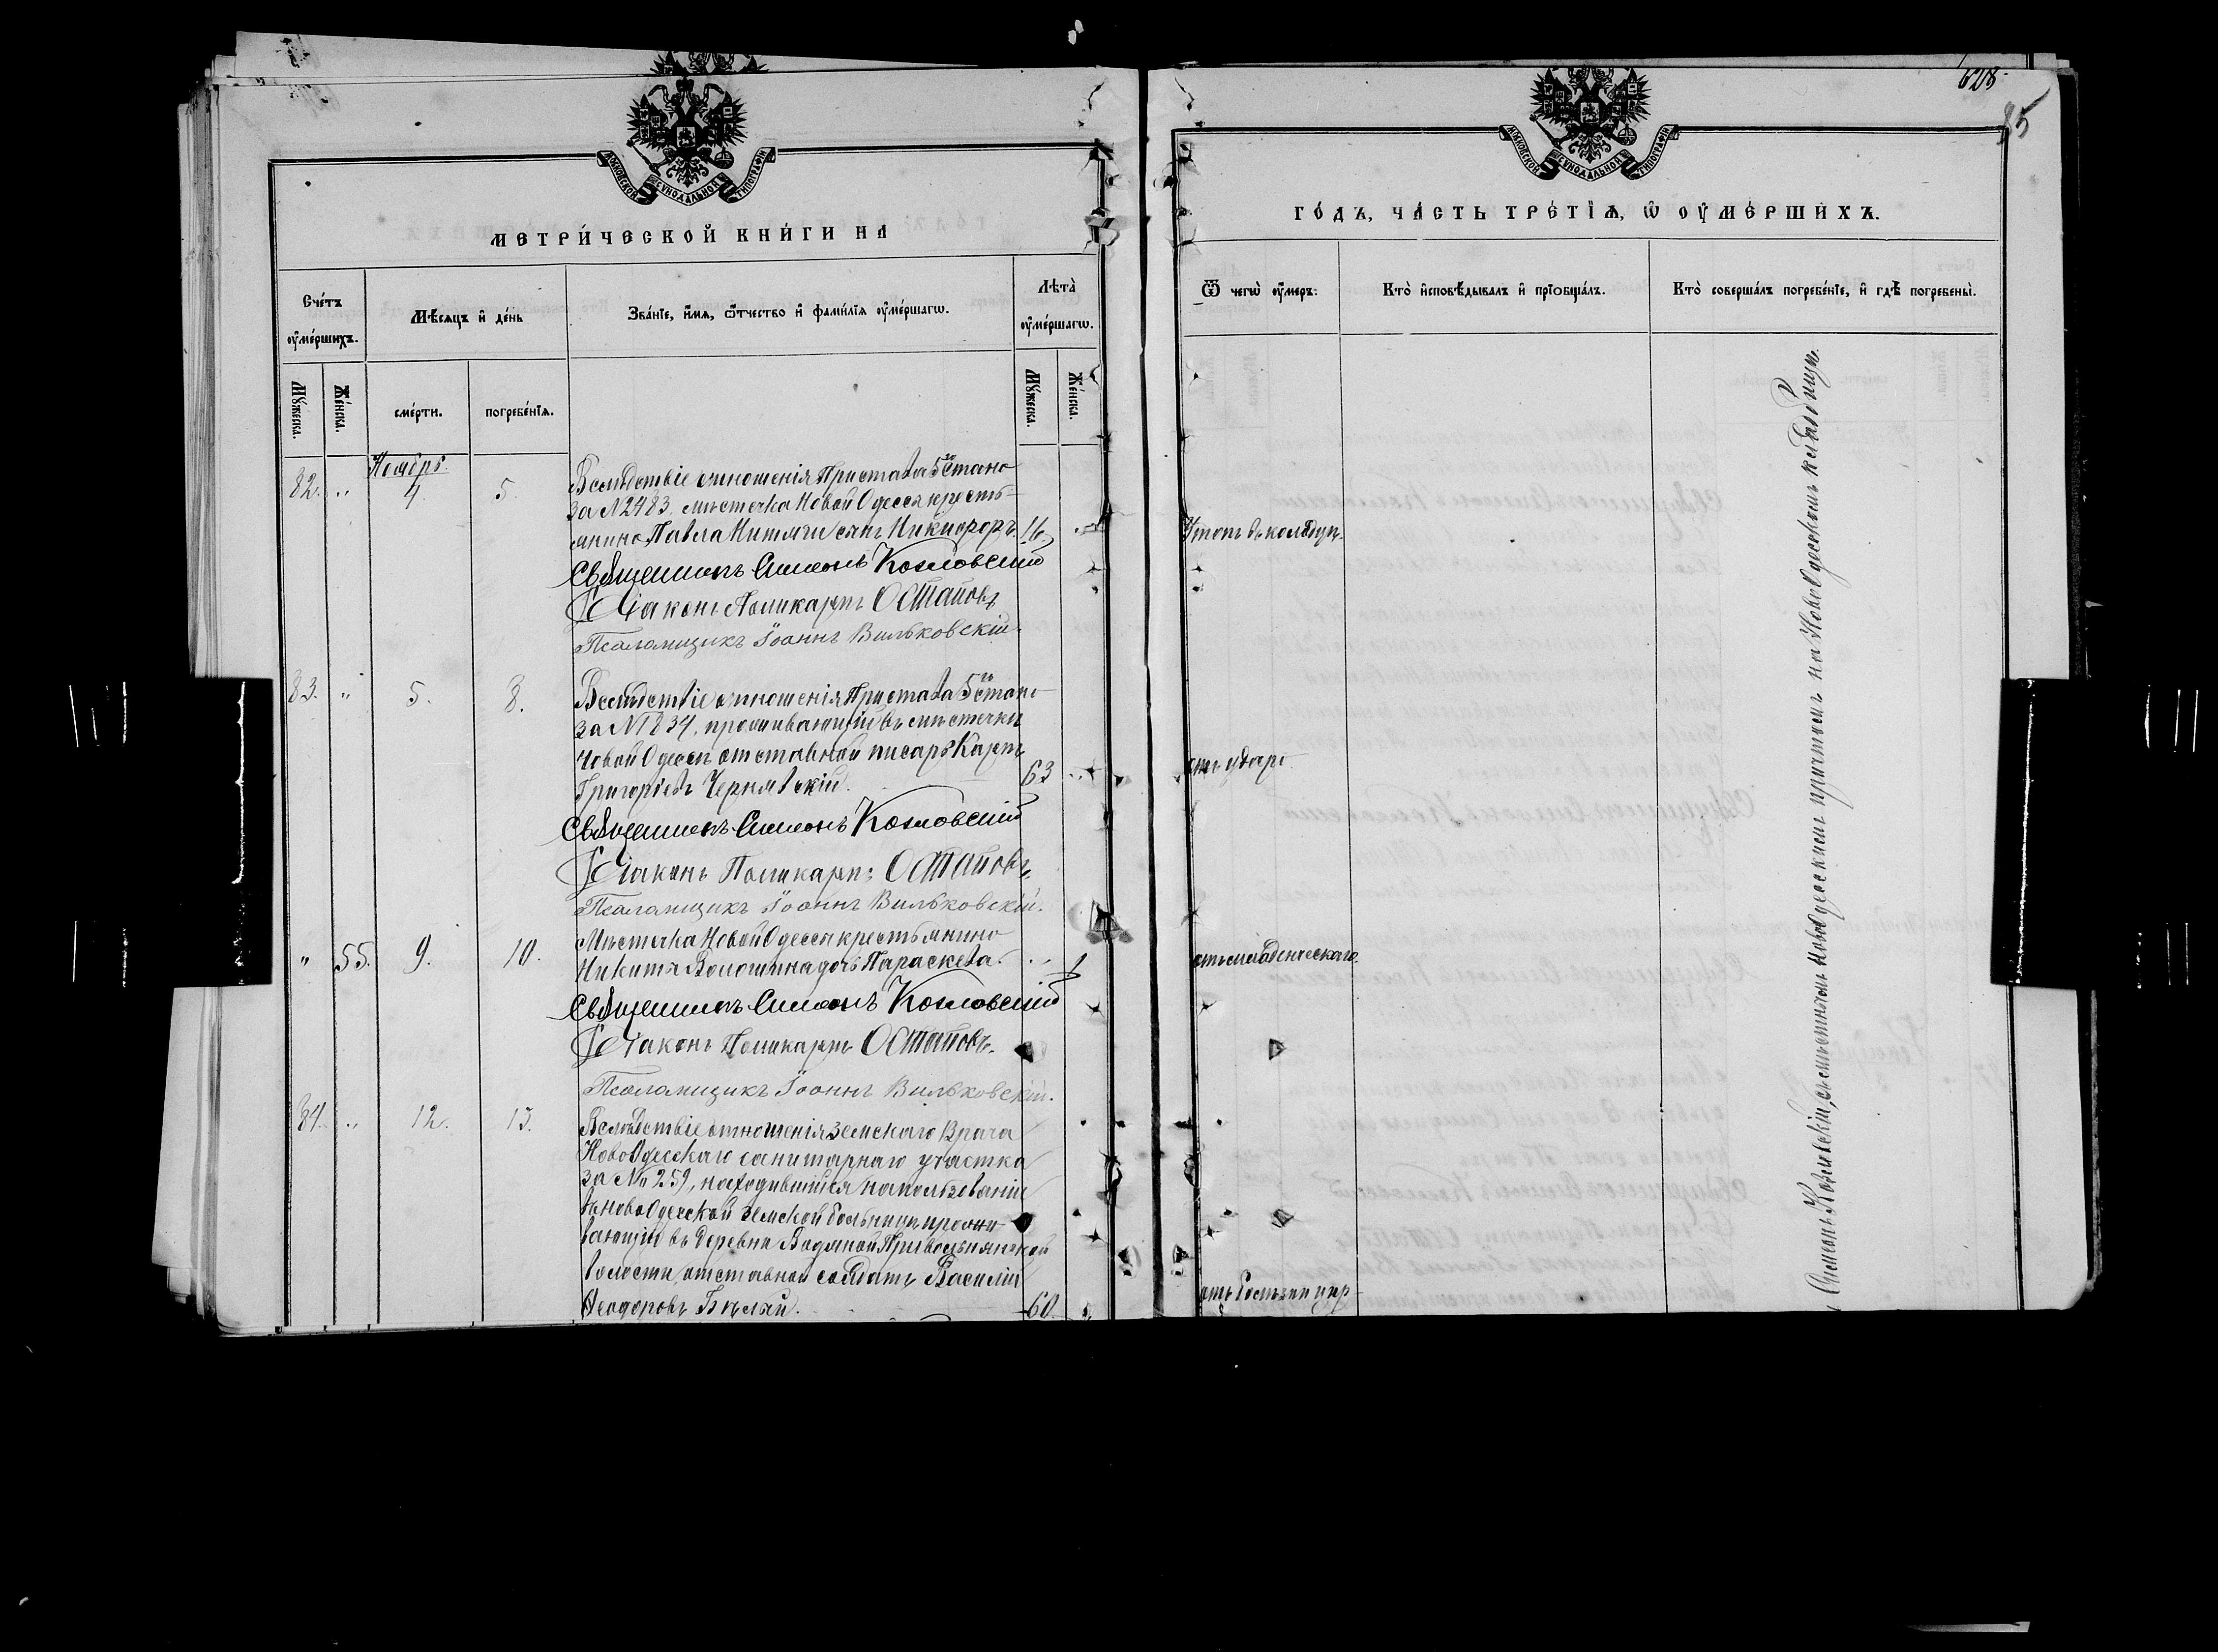 628
85
МОСКОВСКОЙ СѴНОДАЛЬНОЙ ТИПОГРАФІИ
МЕТРИ́ЧЕСКОЙ КНИ́ГИ НА
Сче́тъ ᲂу҆ме́ршихъ.
Мѣ́сяцъ и҆ де́нь
Зва́нїе, и҆́мя, ѻ҆́тчество и҆ фами́лїя ᲂу҆ме́ршагѡ.
Лѣта̀ ᲂу҆ме́ршагѡ.
Мꙋ́жеска.
Же́нска.
сме́рти.
погребе́нїѧ.
Мꙋ́жеска.
Же́нска.
Ноябрь.
82. " 4. 5.
Вслѣдствіе отношенія Пристава 5го Стана
за №2483. мѣстечка Новой Одессы кресть-
янина Павла сынъ Никифоръ. 16.
Священникъ Симеонъ Козловскій
Діаконъ Поликарпъ Остаповъ
Псаломщикъ Іоаннъ Вильковскій.
83. " 5. 8.
Вслѣдствіе отношенія Пристава 5го Стана
за № 1834, проживающій въ мѣстечкѣ
Новой Одессѣ отставной писарь Карпъ
Григорьевъ Чернявскій. 63
Священникъ Симеонъ Козловскій
Діаконъ Поликарпъ Остаповъ.
Псаломщикъ Іоаннъ Вильковскій.
" 55. 9. 10.
Мѣстечка Новой Одессы крестьянина
Никиты Волошина дочь Параскева. 1
Священникъ Симеонъ Козловскій
Діаконъ Поликарпъ Остаповъ.
Псаломщикъ Іоаннъ Вильковскій.
84. " 12. 13.
Вслѣдствіе отношенія Земскаго Врача
НовоОдесскаго санитарнаго участка
за № 259, находившійся на пользованіи
въ НовоОдесской Земской больницѣ прожи-
вающій въ деревнѣ Водяной Привольнянской
волости, отставной солдатъ Василій
Ѳеодоровъ Бѣлый. 60.
МОСКОВСКОЙ СѴНОДАЛЬНОЙ ТИПОГРАФІИ
ГО́ДЪ, ЧА́СТЬ ТРЕ́ТЇѦ, Ѡ҆ ОУ҆МЕ́РШИХЪ.
Ѿ чегѡ̀ ᲂу҆́меръ.
Кто̀ и҆сповѣ́дывалъ и҆ прїѡбща́лъ.
Кто̀ соверша́лъ погребе́нїе, и҆ гдѣ̀ погребены̀.
Утопъ въ колодцѣ.
отъ удара
отъ младенческаго.
Симеонъ Козловскій, съ мѣстнымъ НовоОдесскимъ причтомъ на НовоОдесскомъ кладбищѣ.